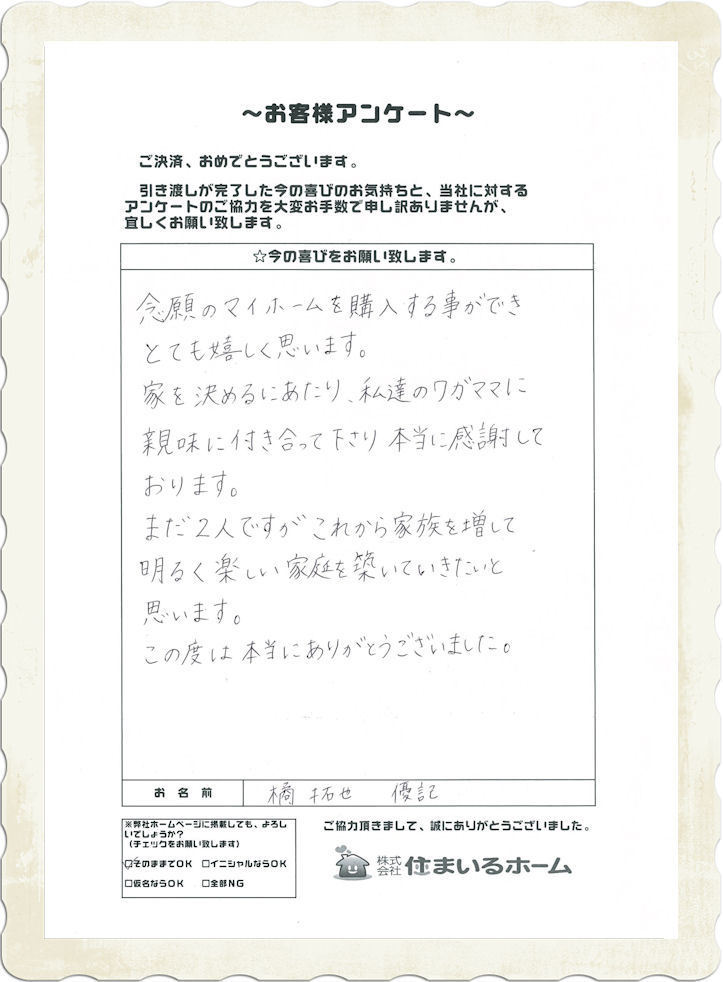 ～お客様アンケート～
ご決済、おめでとうございます。
引き渡しが完了した今の喜びのお気持ちと、当社に対する
アンケートのご協力を大変お手数で申し訳ありませんが、
宜しくお願い致します。
☆今の喜びをお願い致します。
念願のマイホームを購入する事ができ
とても嬉しく思います。
家を決めるにあたり、私達のワガママに
親味に付き合って下さり本当に感謝して
おります。
まだ2人ですがこれから家族を増して
明るく楽しい家庭を築いていきたいと
思います。
この度は本当にありがとうございました。
お名前 橘 拓也 優記
※弊社ホームページに掲載しても、よろし
いでしょうか？
（チェックをお願い致します）
☑そのままでOK □イニシャルならOK
□仮名ならOK □全部NG
ご協力頂きまして、誠にありがとうございました。
株式会社 住まいるホーム